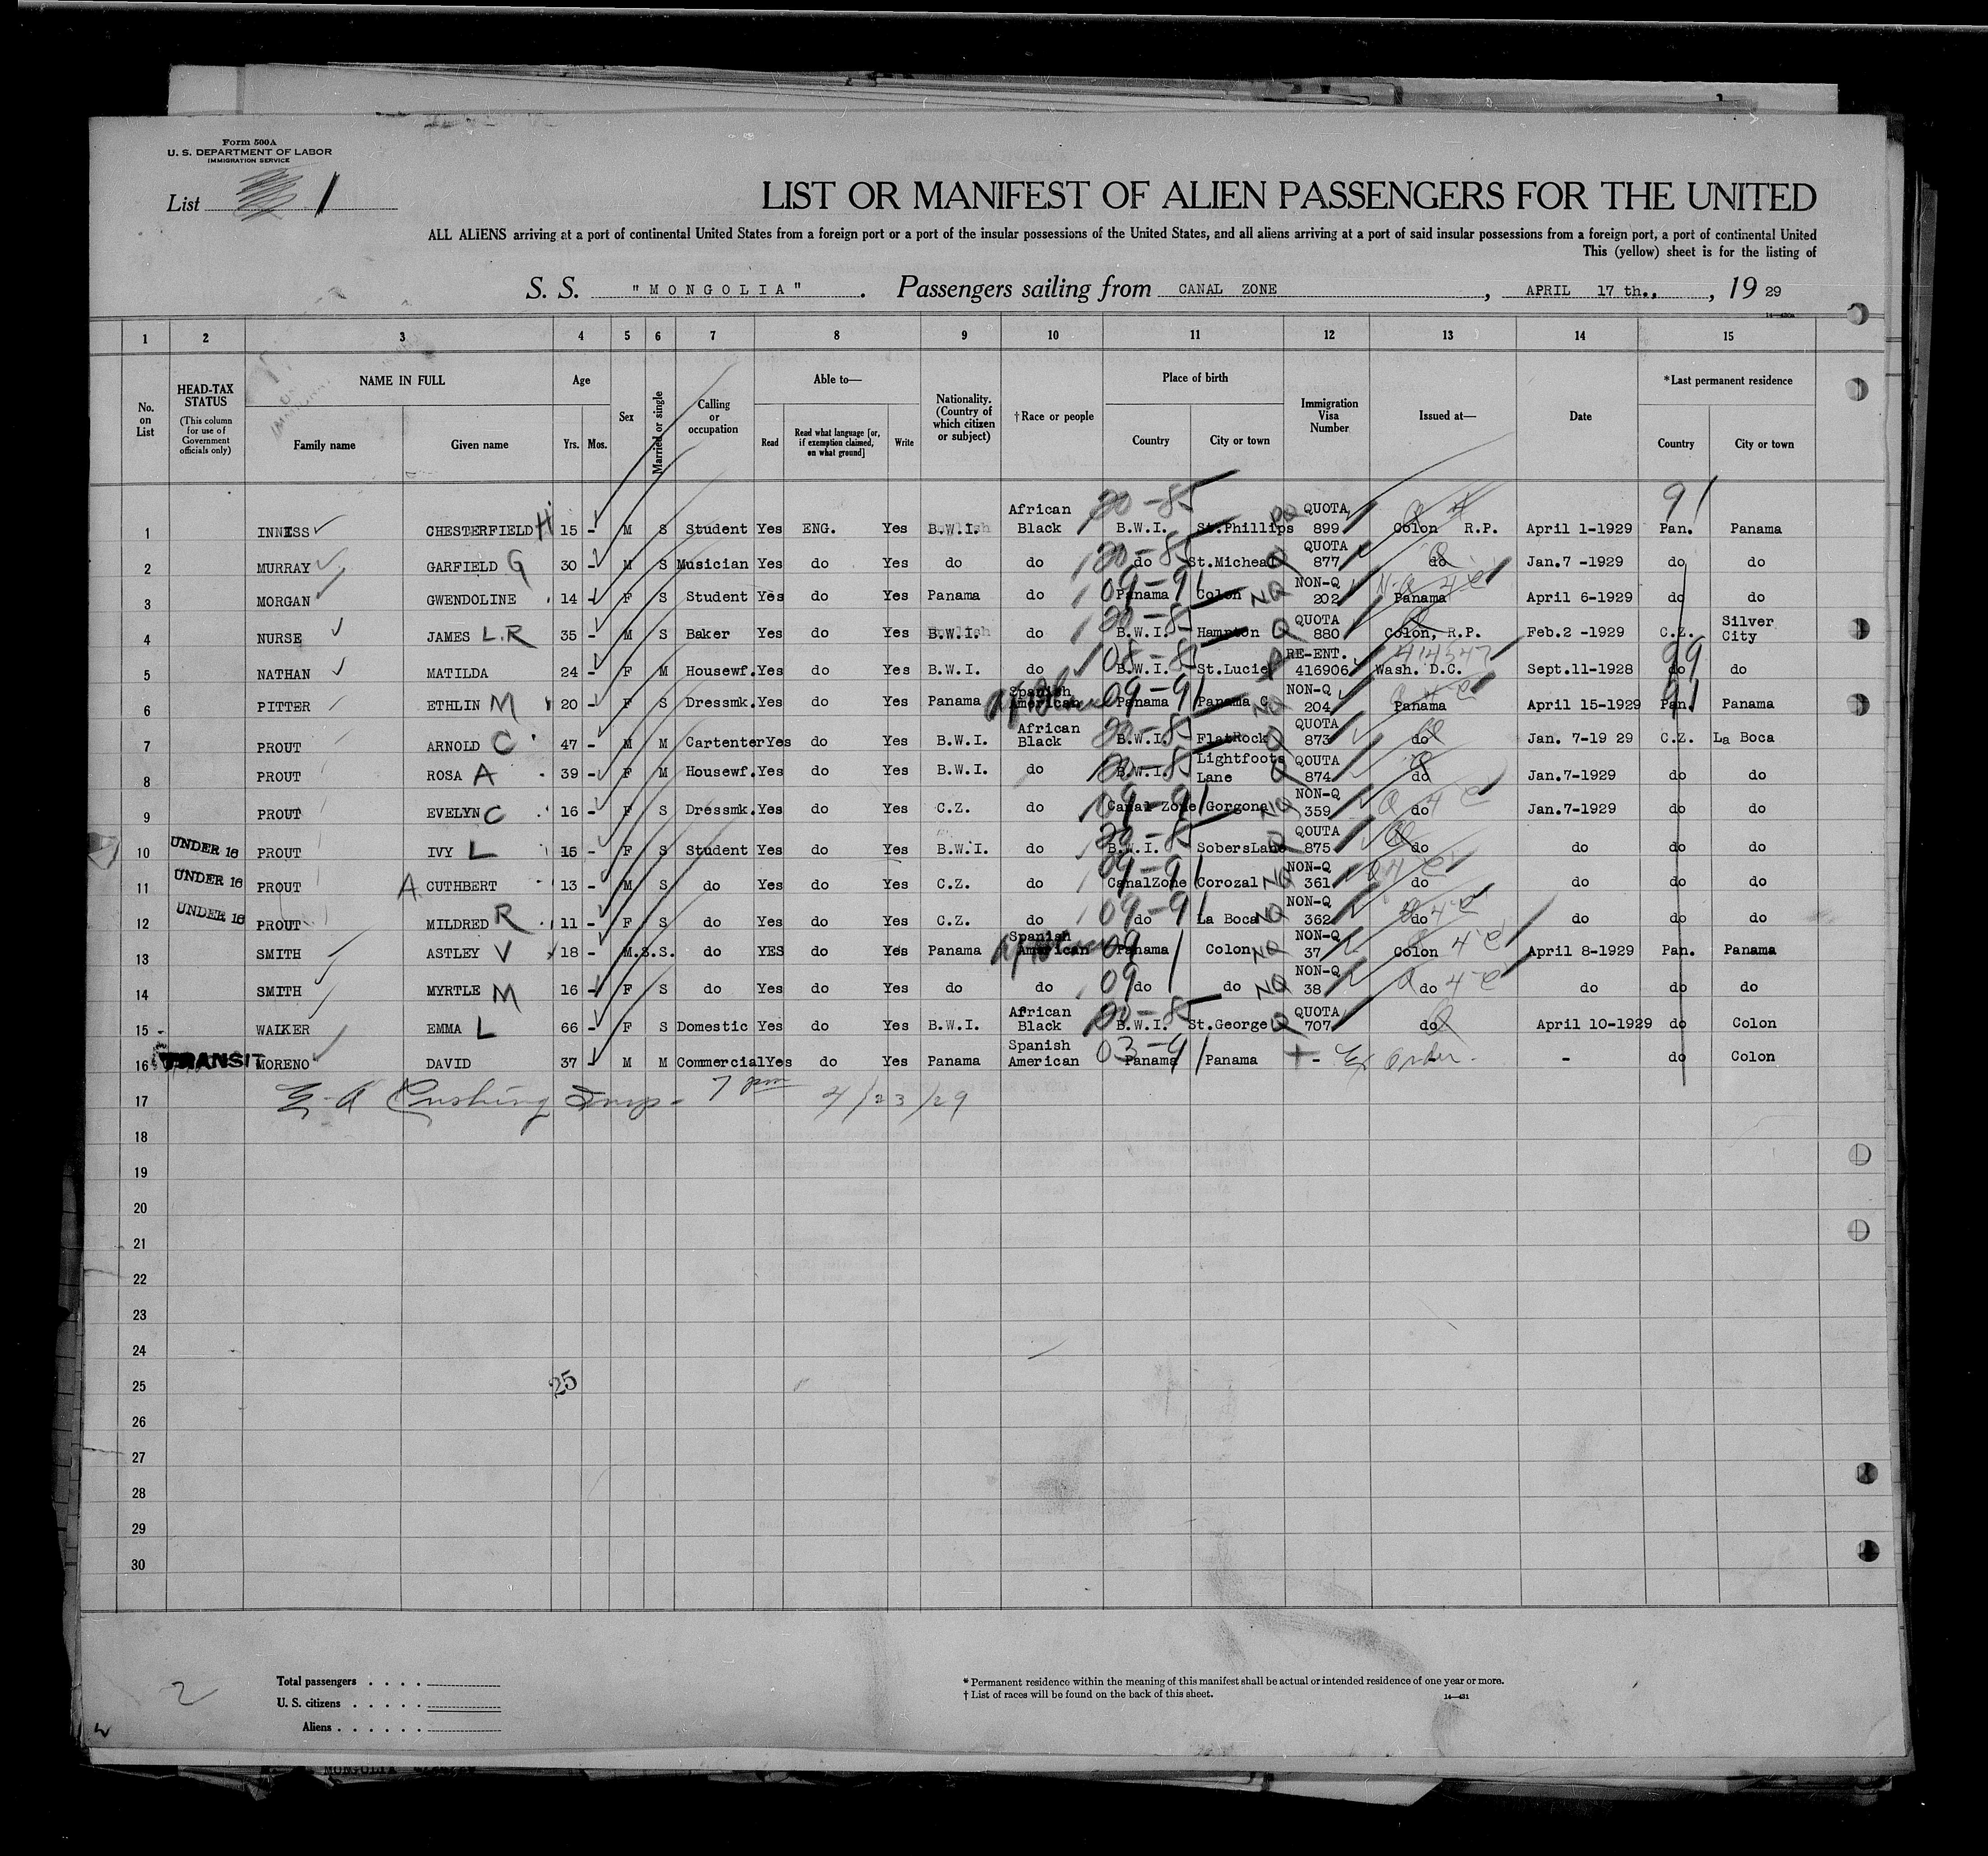 Form 500A
U. S. DEPARTMENT OF LABOR
IMMIGRATION SERVICE
List 1
LIST OR MANIFEST OF ALIEN PASSENGERS FOR THE UNITED
ALL ALIENS arriving at a port of continental United States from a foreign port or a port of the insular possessions of the United States, and all aliens arriving at a port of said insular possessions from a foreign port, a port of continental United
This (yellow) sheet is for the listing of
S. S. "MONGOLIA". Passengers sailing from CANAL ZONE, APRIL 17 th., , 19 29
14—430a
1 2 3 4 5 6 7 8 9 10 11 12 13 14 15
No. on List
HEAD-TAX STATUS (This column for use of Government officials only)
NAME IN FULL
Family name Given name
Age
Yrs. Mos.
Sex
Married or single
Calling or occupation
Able to—
Read Read what language [or, if exemption claimed, on what ground] Write
Nationality. (Country of which citizen or subject)
†Race or people
Place of birth
Country City or town
Immigration Visa Number
Issued at—
Date
*Last permanent residence
Country City or town
1 INNISS CHESTERFIELD H 15 - M S Student Yes ENG. Yes B.W.I. African Black 20-85 B.W.I. St.Phillips QUOTA 899 Colon R.P. April 1-1929 91 Pan. Panama
2 MURRAY GARFIELD G 30 - M S Musician Yes do Yes do do 20-85 do St.Micheal Q QUOTA 877 do Jan.7 -1929 do do
3 MORGAN GWENDOLINE 14 - F S Student Yes do Yes Panama do 09-91 Panama Colon NQ NON-Q 202 Panama April 6-1929 do do
4 NURSE JAMES L.R 35 - M S Baker Yes do Yes B.W.I. do 20-85 B.W.I. Hampton Q QUOTA 880 Colon, R.P. Feb.2 -1929 C.Z. Silver City
5 NATHAN MATILDA 24 - F M Housewf. Yes do Yes B.W.I. do 08-85 B.W.I. St.Lucie RE-ENT. 416906 Wash. D.C. 414547 Sept.11-1928 99 do do
6 PITTER ETHLIN M 20 - F S Dressmk. Yes do Yes Panama Spanish American Af Blk 09-91 Panama Panama C NQ NON-Q 204 Panama Q 4 C April 15-1929 91 Pan. Panama
7 PROUT ARNOLD C 47 - M M Cartenter Yes do Yes B.W.I. African Black 20-85 B.W.I. FlatRock Q QUOTA 873 do Q Jan. 7-19 29 C.Z. La Boca
8 PROUT ROSA A 39 - F M Housewf. Yes do Yes B.W.I. do 20-85 B.W.I. Lightfoots Lane Q QOUTA 874 do Jan.7-1929 do do
9 PROUT EVELYN C 16 - F S Dressmk. Yes do Yes C.Z. do 09-91 Canal Zone Gorgona NQ NON-Q 359 do Q 4 C Jan.7-1929 do do
10 UNDER 16 PROUT IVY L 15 - F S Student Yes do Yes B.W.I. do 20-85 B.W.I. SobersLane Q QOUTA 875 do do do do
11 UNDER 16 PROUT A CUTHBERT 13 - M S do Yes do Yes C.Z. do 09-91 CanalZone Corozal NQ NON-Q 361 do 4 C do do do
12 UNDER 16 PROUT MILDRED R 11 - F S do Yes do Yes C.Z. do 09-91 do La Boca NQ NON-Q 362 do 4 C do do do
13 SMITH ASTLEY V 18 - M.S.S. do YES do Yes Panama Spanish American 09 Panama Colon NQ NON-Q 37 Colon 4 C April 8-1929 Pan. Panama
14 SMITH MYRTLE M 16 - F S do Yes do Yes do do 09 do do NQ NON-Q 38 do Q 4 C do do do
15 WALKER EMMA L 66 - F S Domestic Yes do Yes B.W.I. African Black 20-85 B.W.I. St.George Q QUOTA 707 do Q April 10-1929 do Colon
16 TRANSIT MORENO DAVID 37 - M M Commercial Yes do Yes Panama Spanish American 03-91 Panama Panama - Ex Order. - do Colon
17 E-A Cushing Insp- 7 pm 4/23/29
18
19
20
21
22
23
24
25 25
26
27
28
29
30
Total passengers
U. S. citizens
Aliens
2
* Permanent residence within the meaning of this manifest shall be actual or intended residence of one year or more.
† List of races will be found on the back of this sheet.
14—431
MONGOLIA